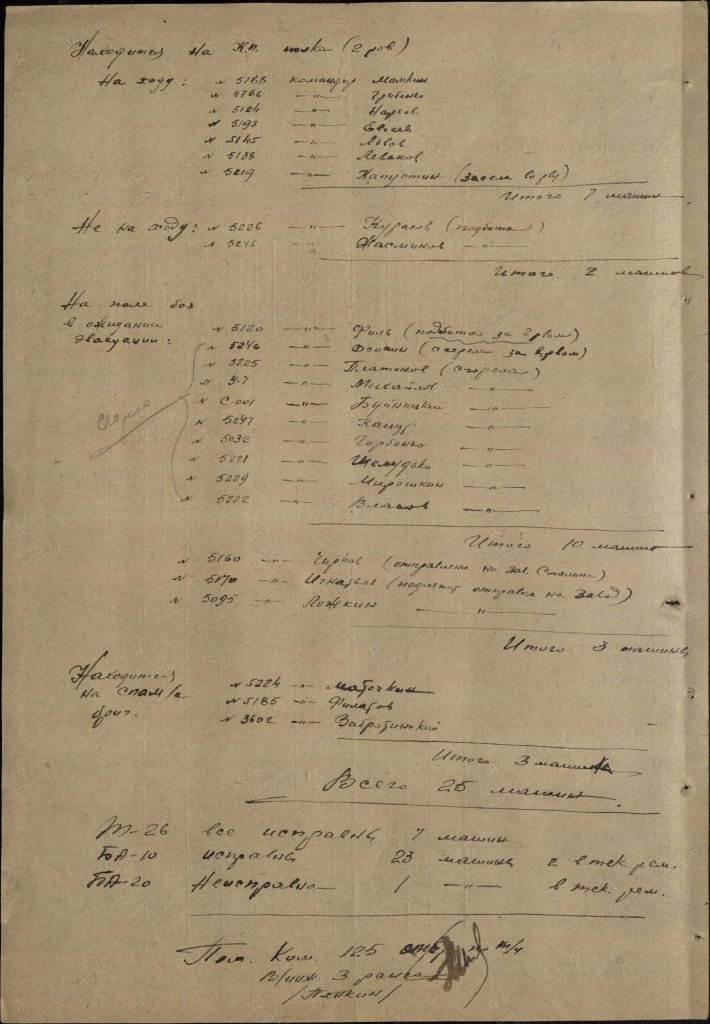 Находится на К.П. полка (2 ров)
На ходу: № 5188 командир Момкин
№ 4766 —"— Грибенко
№ 5124 —"— Научов
№ 5193 —"— Евсеев
№ 5145 —"— Львов
№ 5138 —"— Леваков
№ 5219 —"— Капустин (засел во рву)
Итого 7 машин
Не на ходу: № 5226 —"— Курасов (подбита)
№ —"— Жасминов —"—
Итого 2 машины
На поле боя
в ожидании
эвакуации:
№ 5120 —"— Филь (подбита за 2 рвом)
№ 5246 —"— Фокин (сгорела за рвом)
№ 5225 —"— Платонов (сгорела)
№ У-7 —"— Михайлов —"—
№ С-001 —"— Буйницкий —"—
№ 5247 —"— Кацур —"—
№ 5032 —"— Горбенко —"—
№ 5221 —"— Шелудько —"—
№ 5229 —"— Мирошкин —"—
№ 5222 —"— Власов —"—
Итого 10 машин
№ 5160 —"— Чирков (отправлена на зав. Сталина)
№ —"— Игнатьев (подлежит отправке на завод)
№ 5095 —"— Ложкин —"—
Итого 3 машины
Находится
на спам/е
бриг.
№ 5224 —"— Маточкин
№ 5185 —"— Филатов
№ 3602 —"— Забротинский
Итого 3 машины
Всего 25 машин
Т-26 все исправны 7 машин
БА-10 исправны 23 машины 2 в тек. рем.
БА-20 Неисправно — 1 —"— в тек. рем.
Пом. Ком. 125 по т/ч
В/инж. 3 ранга
/Пяткин/